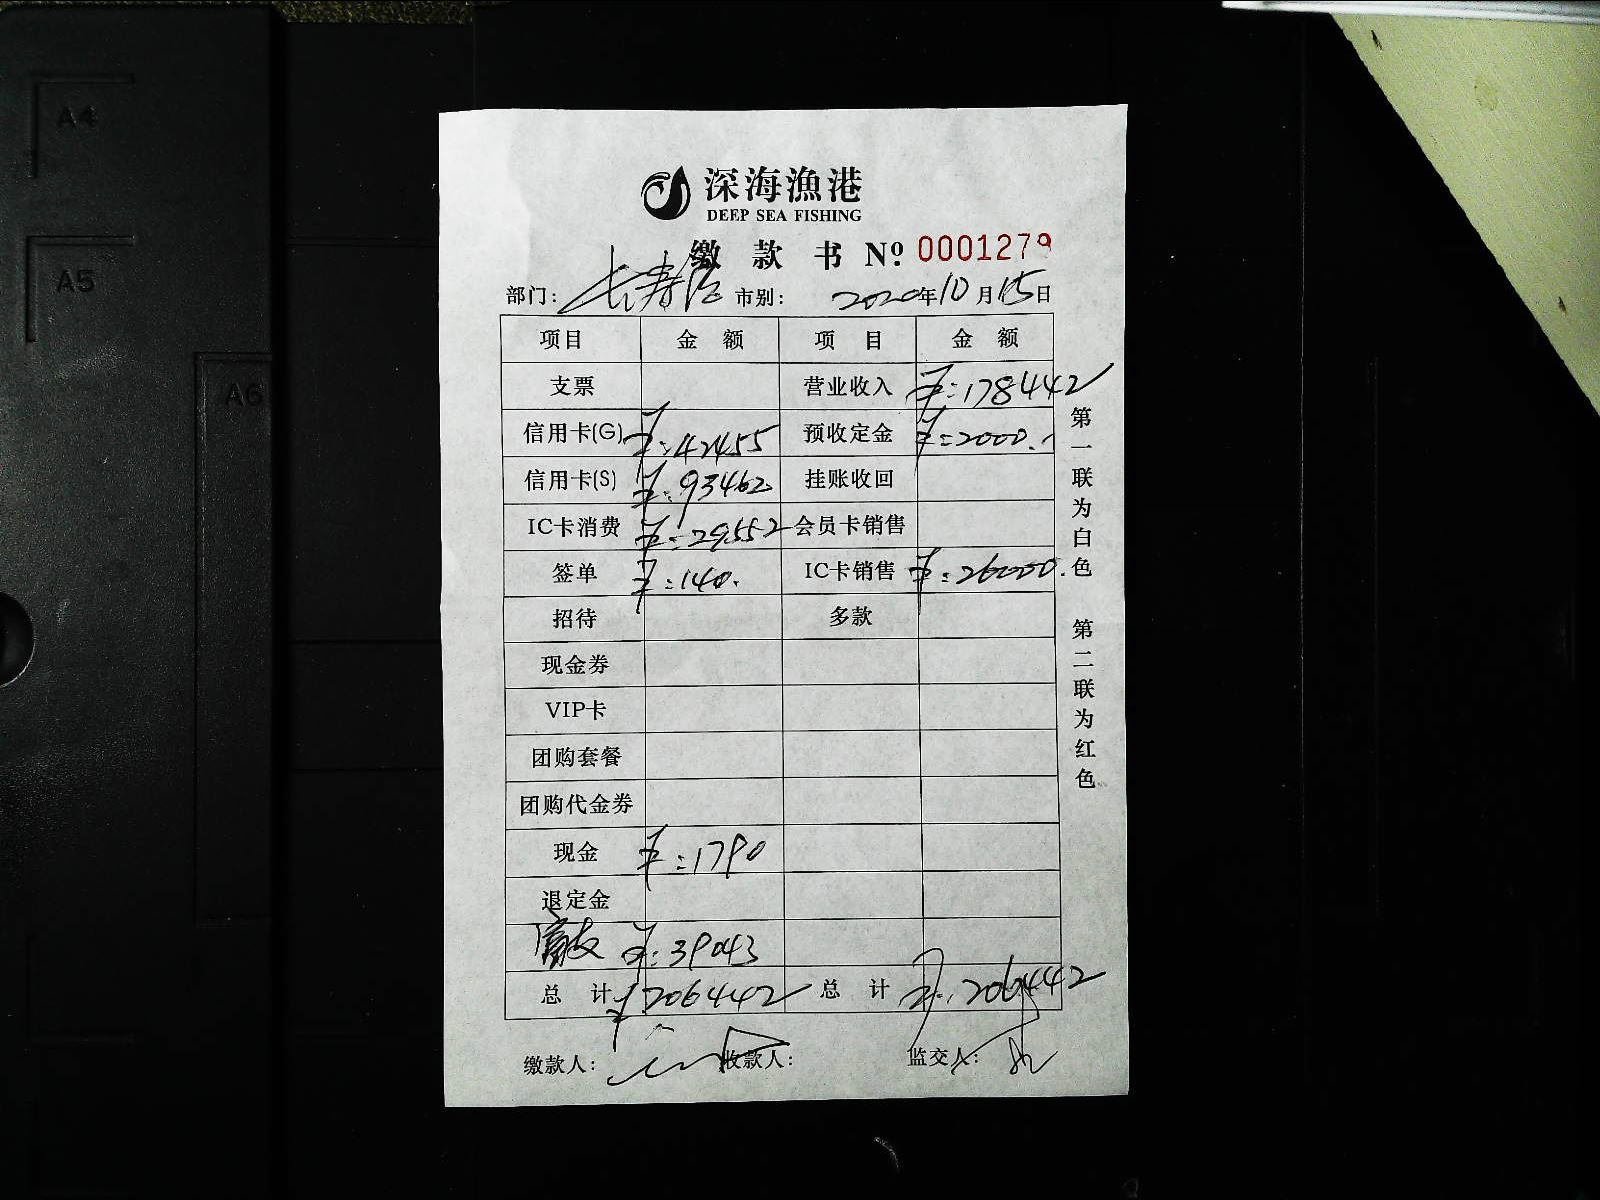 A4
A5
A6
深海漁港
DEEP SEA FISHING
缴 款 书 Nº: 0001279
部门: 长寿路 市别: 2020年10月15日
项目 金 额 项 目 金 额
支票 营业收入 ¥:178442
信用卡(G) ¥:42455 预收定金 ¥:2000.
信用卡(S) ¥:93462 挂账收回
IC卡消费 ¥:29552 会员卡销售
签单 ¥:140. IC卡销售 ¥:26000.
招待 多款
现金券
VIP卡
团购套餐
团购代金券
现金 ¥:1790
退定金
¥:39043
总 计 ¥206442 总 计 ¥:206442
缴款人: 收款人: 监交人:
第一联为白色 第二联为红色